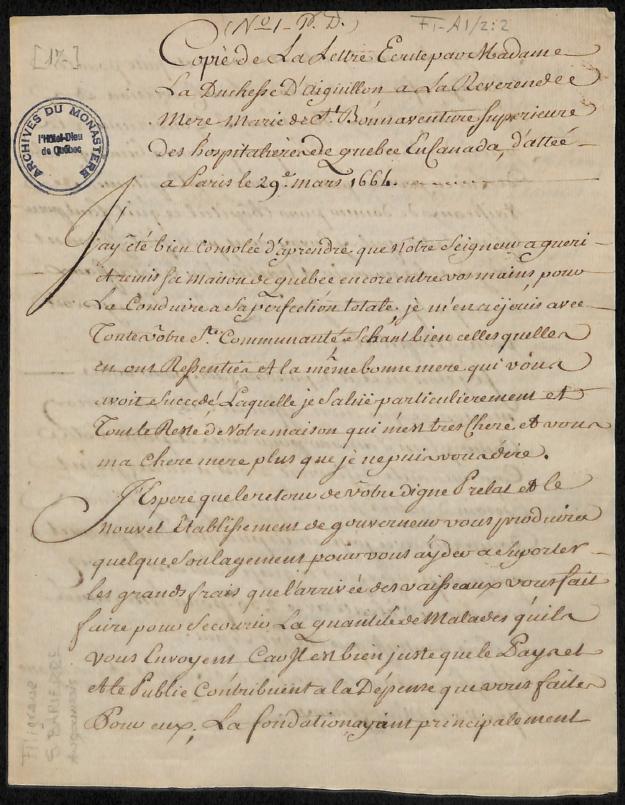 (N°. 1 - P. D.)
F1-A1/2:2
[17-]
Copie de La Lettre Ecritte par Madame
La Duchesse D'aiguillon a La Reverende
Mere Marie de St. Bonnaventure Superieure
Des hospitalieres de quebec En Canada, d'attée
a Paris le 29e. mars 1664.
ARCHIVES DU MONASTÈRE
l'Hôtel-Dieu
de Québec
J'ay été bien consolée d'aprendre que Notre Seigneur a gueri
et remis sa maison de quebec encore entre vos mains, pour
La Conduire a sa perfection totale, je m'en rejouis avec
Toute vôtre Ste. Communauté Sçhant bien celles quelles
en ont Ressenties et la même bonne mere qui vous
avoit Succedé Laquelle je Salüe particulierement et
Tout le Reste de Votre maison qui m'est tres Chere, et vous
ma chere mere plus que je ne puis vous dire.
J'Espere que le retour de vôtre digne Prelat et le
Nouvel Etablissement de gouverneur vous produira
quelque Soulagement pour vous ayder a Suporter
les grands frais que l'arrivée des vaisseaux vous fait
faire pour Secourir La quantité de Malades qu'ils
vous Envoyent Car Il est bien juste que le Pays et
et le Public Contribuent a la Dépense que vous faites
Pour eux, La fondation ayant principalement
Filigrane :